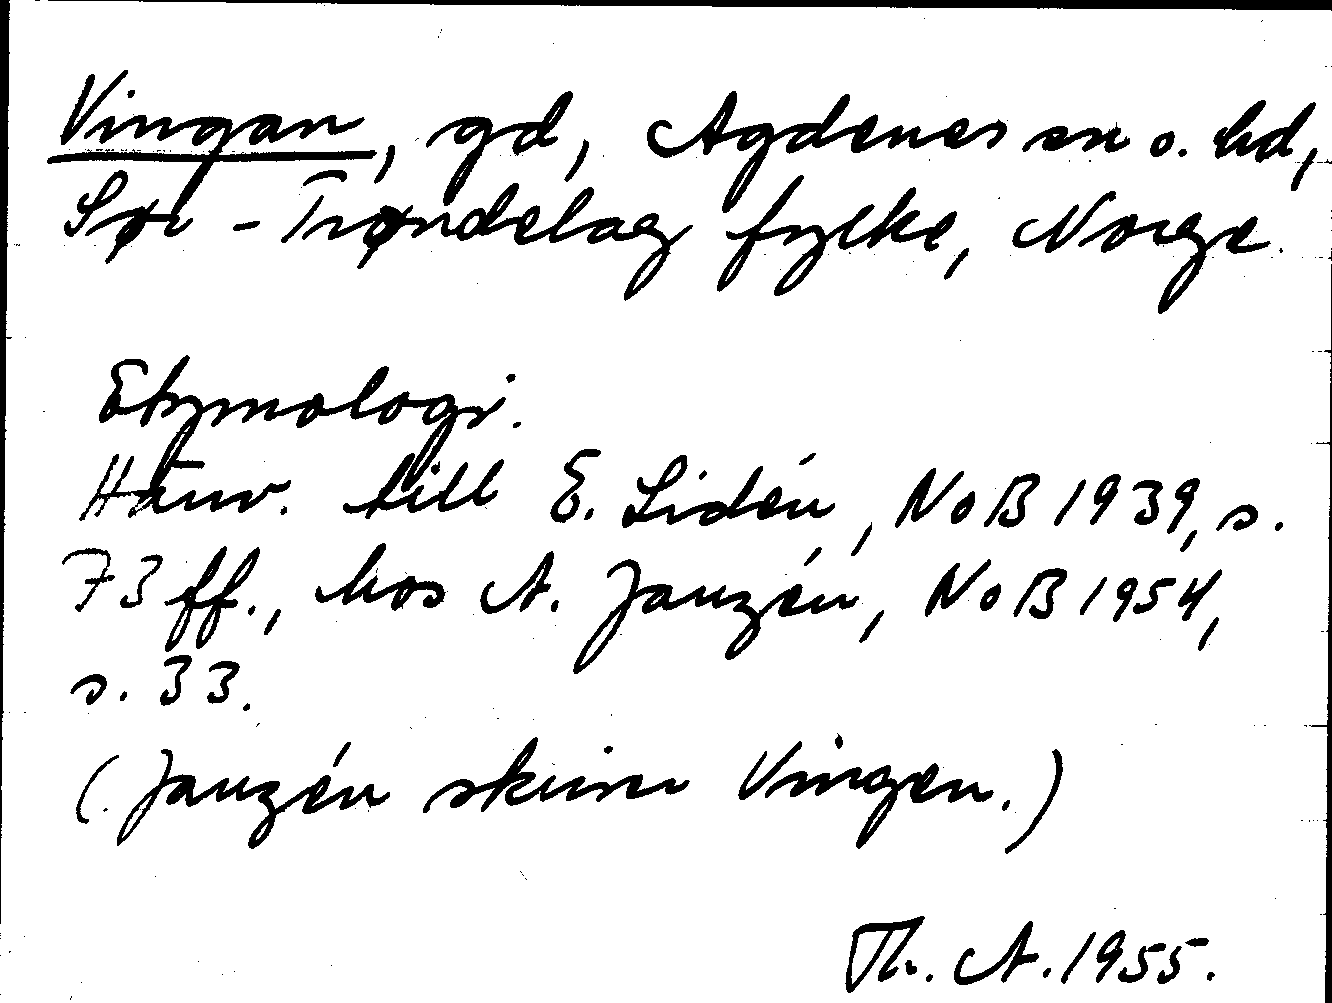 Vingan, gd, Agdenes sn o. hd,
Sør-Trøndelag fylke, Norge.
Etymologi.
Hänv. till E. Lidén, NoB 1939, s.
73 ff., hos A. Janzén, NoB 1954,
s. 33.
(Janzén skriver Vingen.)
Th. A. 1955.